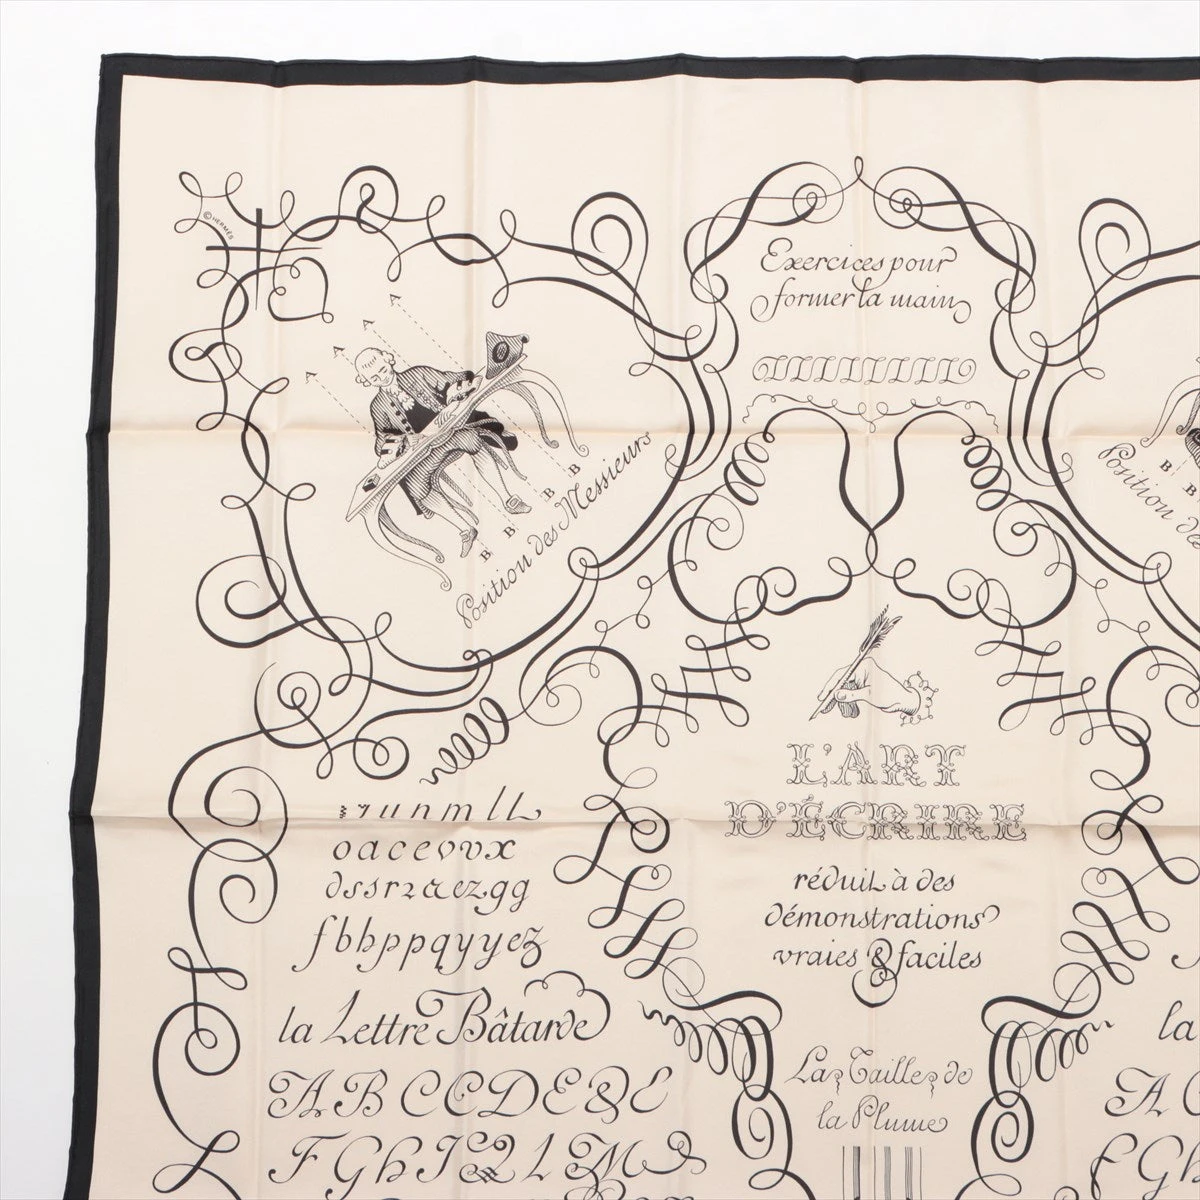 ©HERMÈS
Exercices pour
former la main
A
A
A
A
B
B
B
B
Position des Messieurs
Position de
B
B
L'ART
D'ÉCRIRE
réduit à des
démonstrations
vraies & faciles
oaceovvx
fbhppqyyez
la Lettre Bâtarde
A B C C D E & E
La Taille de
la Plume
la
A C
F G